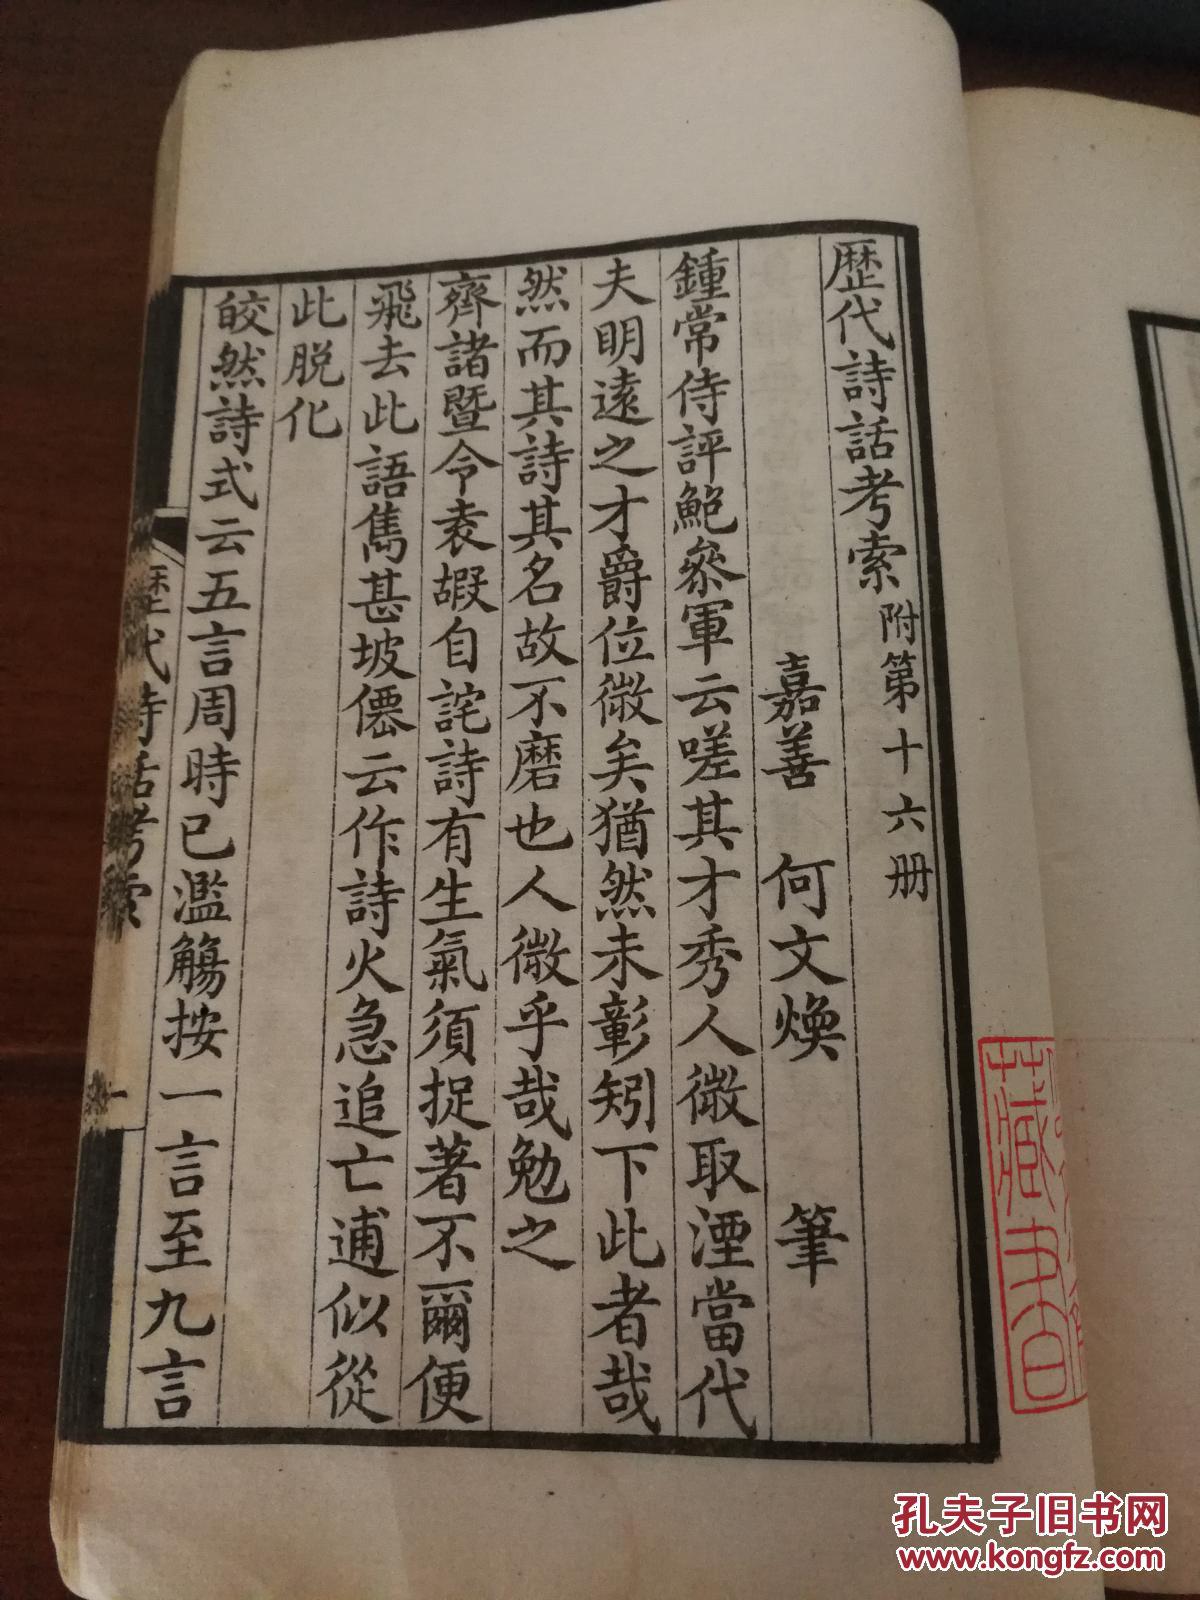 歷代詩話考索 附第十六册
嘉善 何文煥 筆
鍾常侍評鮑叅軍云嗟其才秀人微取湮當代
夫明遠之才爵位微矣猶然未彰矧下此者哉
然而其詩其名故不磨也人微乎哉勉之
齊諸暨令袁嘏自詫詩有生氣須捉著不爾便
飛去此語雋甚坡僊云作詩火急追亡逋似從
此脱化
皎然詩式云五言周時已濫觴按一言至九言
歷代詩話考索
一
藏書
孔夫子旧书网
www.kongfz.com